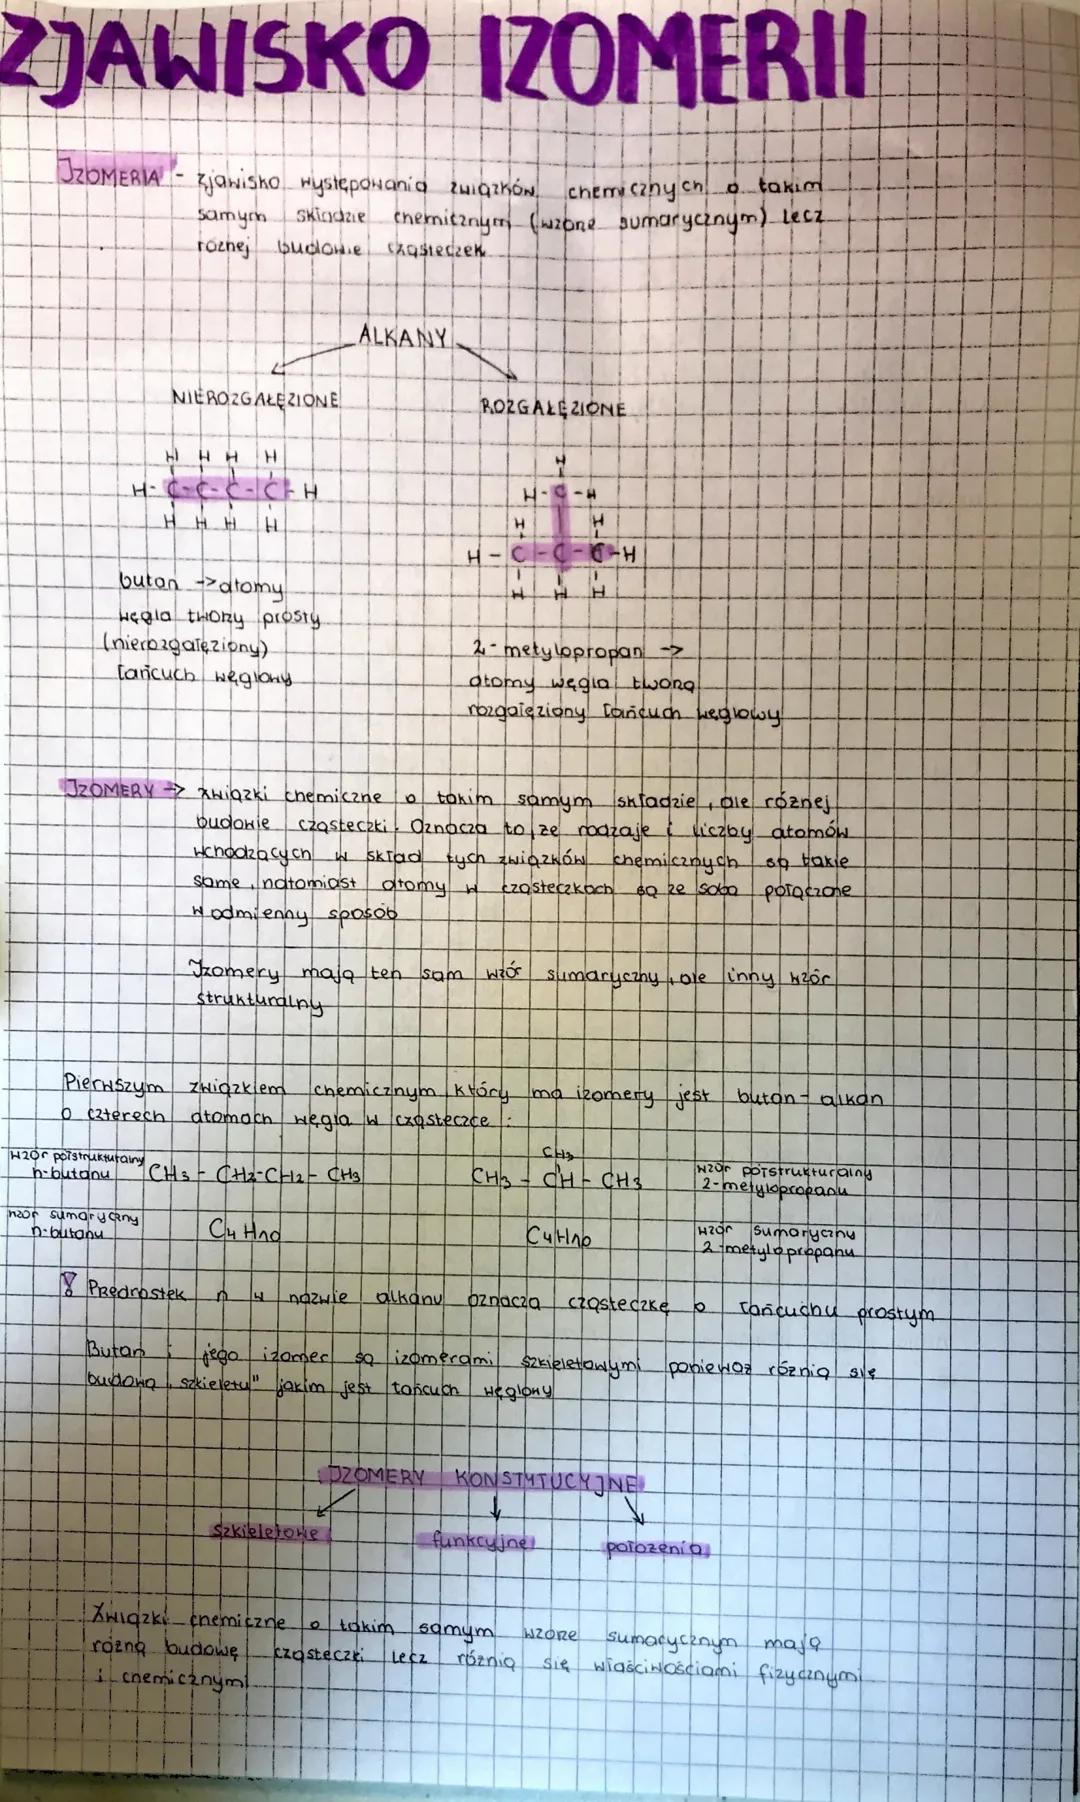 ZJAWISKO IZOMERII
IZOMERIA - zjawisko występowania związków chemicznych o takim
samym składzie chemicznym (wzorze sumarycznym) lecz
różnej budowie cząsteczek
ALKANY
NIEROZGAŁĘZIONE
ROZGAŁĘZIONE
H H H H
H-C-C-C-C-H
H H H H
H
H-C-H
H H
H-C-C-C-H
H H H
butan -> atomy
węgla tworzy prosty
(nierozgałęziony)
łańcuch węglowy
2-metylopropan ->
atomy węgla tworzą
rozgałęziony łańcuch węglowy
IZOMERY -> związki chemiczne o takim samym składzie, ale różnej
budowie cząsteczki. Oznacza to, że rodzaje i liczby atomów
wchodzących w skład tych związków chemicznych są takie
same, natomiast atomy w cząsteczkach są ze sobą połączone
w odmienny sposób
Izomery mają ten sam wzór sumaryczny, ale inny wzór
strukturalny
Pierwszym związkiem chemicznym który ma izomery jest butan - alkan
o czterech atomach węgla w cząsteczce:
wzór półstrukturalny
n-butanu
CH3 - CH2-CH2 - CH3
CH3
CH3 - CH - CH3
wzór półstrukturalny
2-metylopropanu
wzór sumaryczny
n-butanu
C4H10
C4H10
wzór sumaryczny
2-metylopropanu
! Przedrostek n w nazwie alkanu oznacza cząsteczkę o łańcuchu prostym
Butan i jego izomer są izomerami szkieletowymi ponieważ różnią się
budową „szkieletu" jakim jest łańcuch węglowy
IZOMERY KONSTYTUCYJNE
szkieletowe
funkcyjne
położenia
Związki chemiczne o takim samym wzorze sumarycznym mają
różną budowę cząsteczki lecz różnią się właściwościami fizycznymi
i chemicznymi